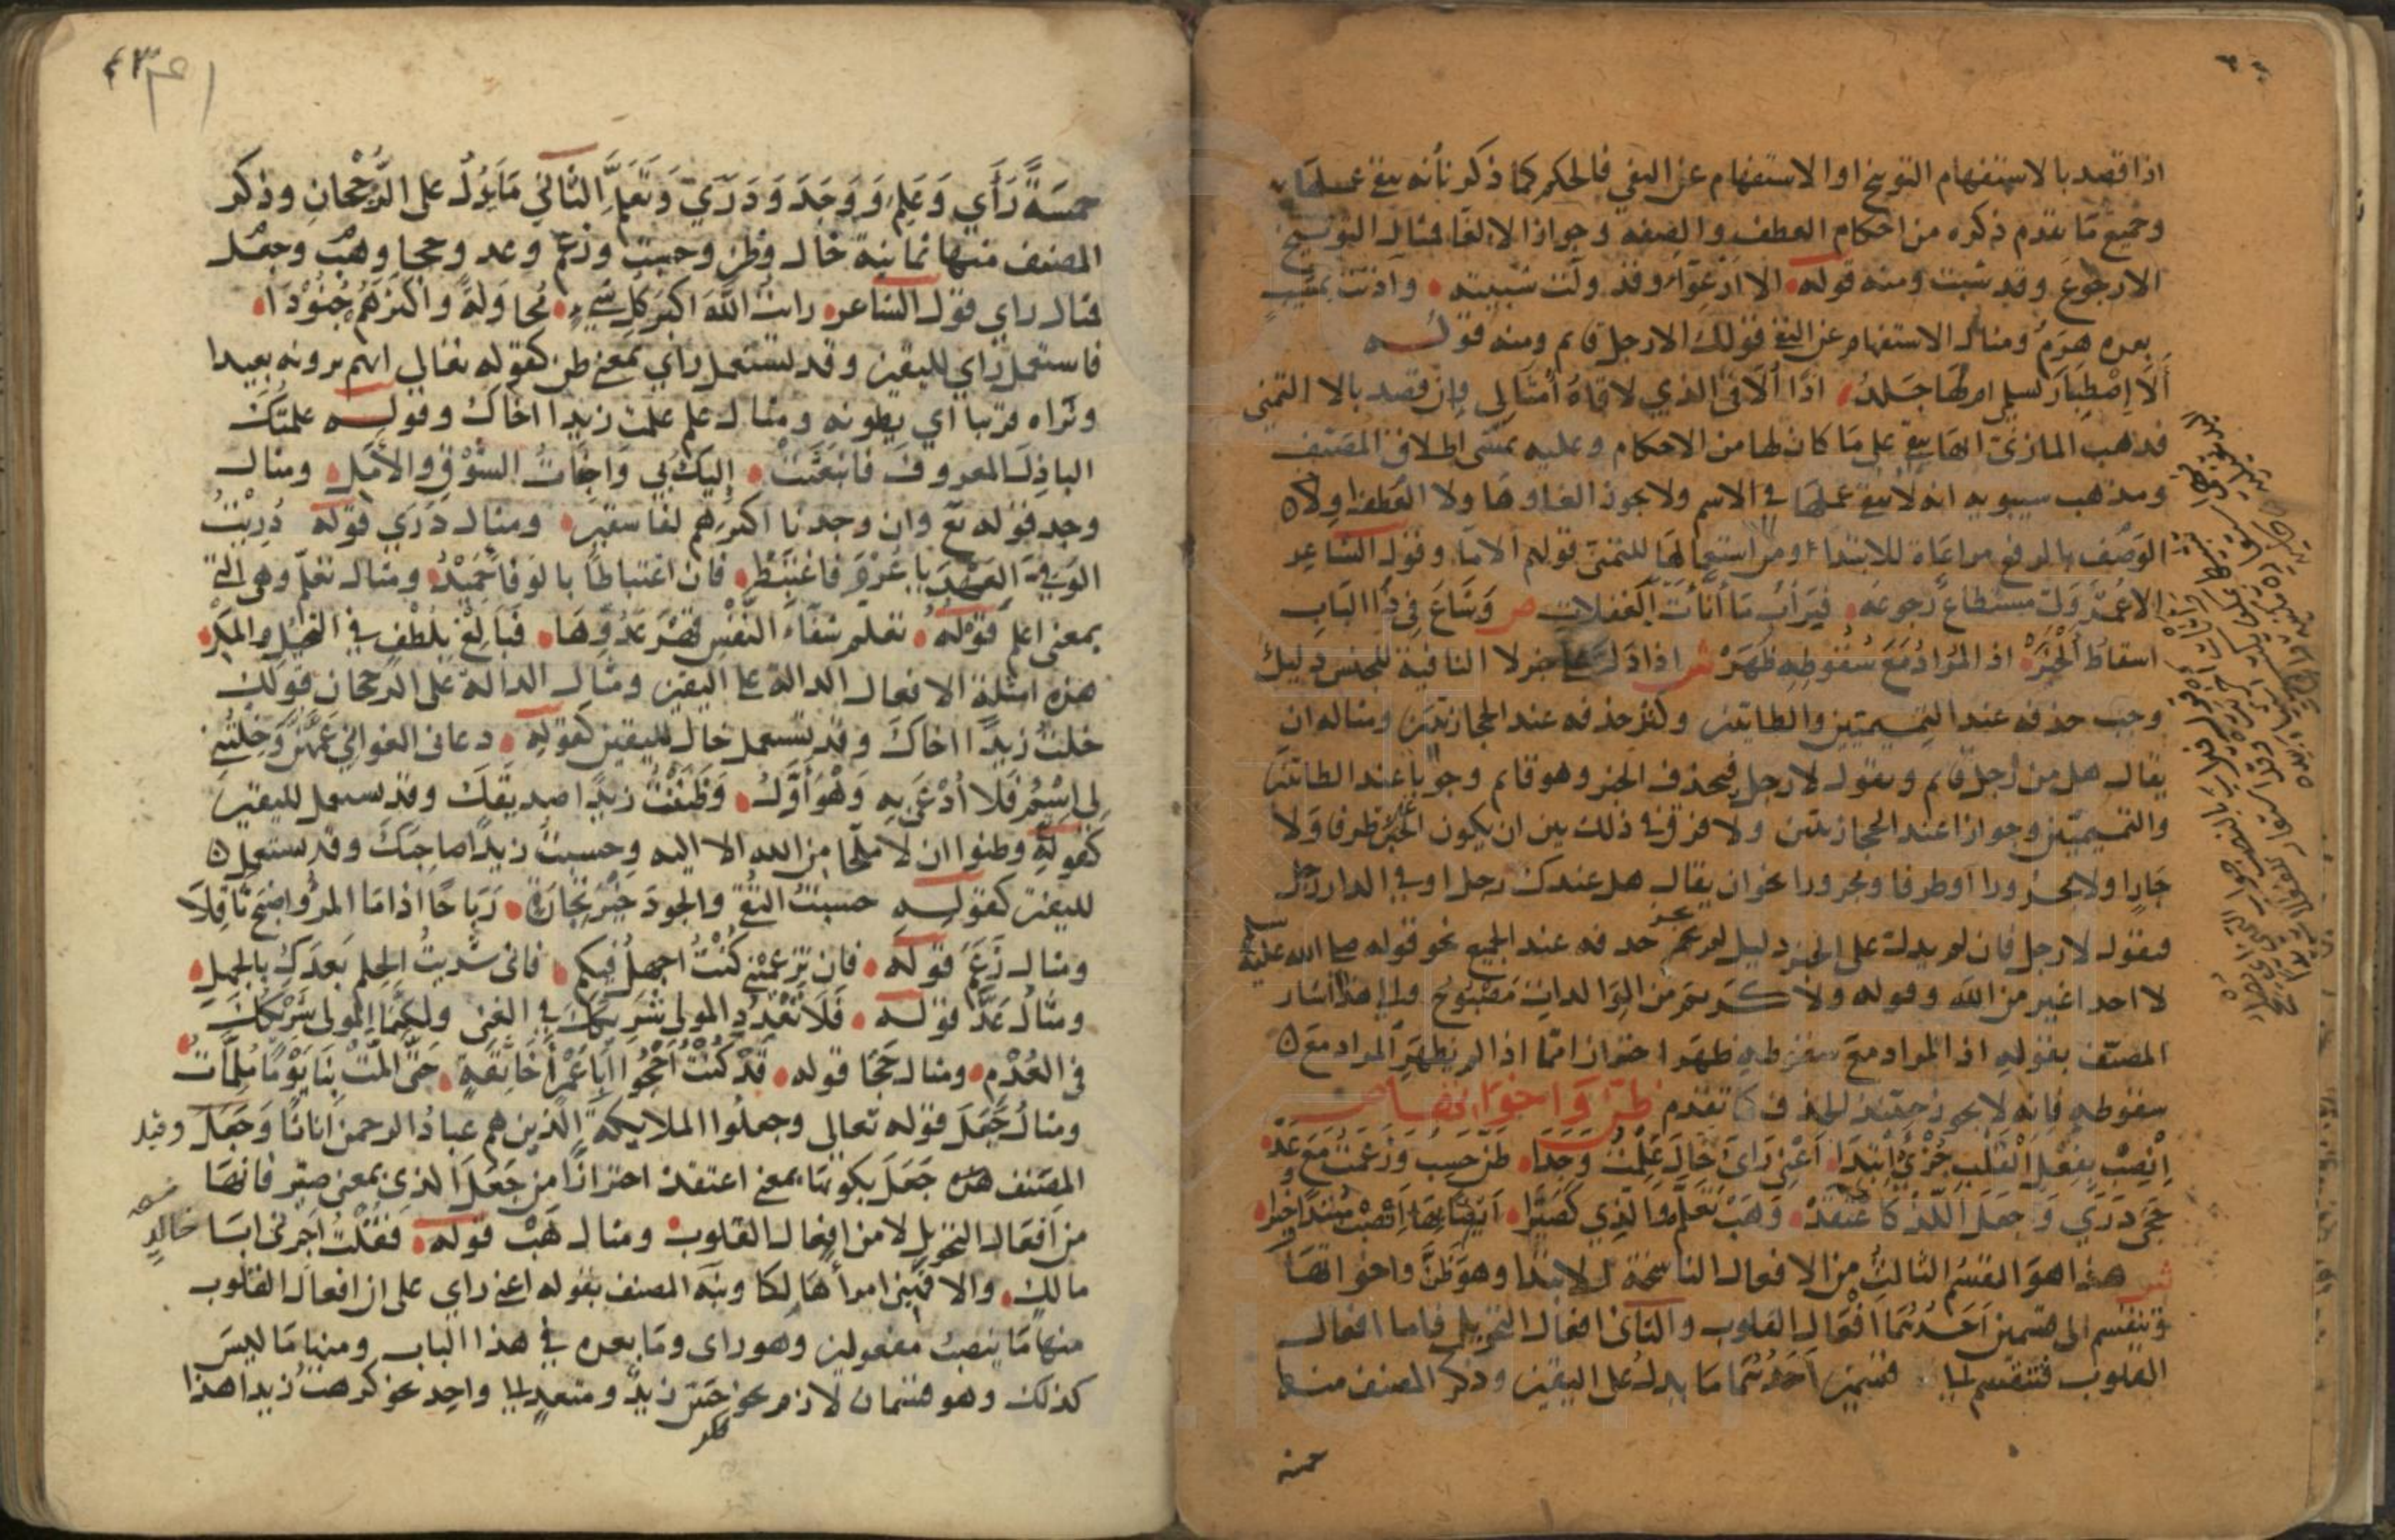 اذا قصد بالاستفهام التوبيخ او الاستفهام عن النفي فالحكم كما ذكر بأنه يبقى عملها
وجميع ما تقدم ذكره من احكام العطف والصفه وجواز الالغا فمثال التوبيخ
الا رجوع وقد شبت ومنه قوله الا ارعواء لمن ولت شبيبته وآذنت بمشيب
بعده هرم ومثال الاستفهام عن النفي قولك الا رجل قايم ومنه قوله
ألا إصطبار لسلمى ام لها جلد اذا ألاقي الذي لاقاه أمثالي وان قصد بالا التمني
فذهب المازني انها تبقى على ما كان لها من الاحكام وعليه يمشى اطلاق المصنف
ومذهب سيبويه انه لا يبقى عملها في الاسم ولا يجوز الغاوها ولا العطف ولا
الوصف بالرفع مراعاة للابتداء ومن استعمالها للتمني قولهم الا ما وقول الشاعر
الا عمر ولى مستطاع رجوعه فيرأب ما أثأت يد الغفلات ص وشاع في ذا الباب
اسقاط الخبر اذ المراد مع سقوطه ظهر ش اذا دل على خبر لا النافية للجنس دليل
وجب حذفه عند التميميين والطايين وكثر حذفه عند الحجازيين ومثاله ان
يقال هل من رجل قايم وتقول لا رجل فيحذف الخبر وهو قايم وجوبا عند الطايين
والتميميين وجوازا عند الحجازيين ولا فرق في ذلك بين ان يكون الخبر ظرفا ولا
جارا ولا مجرورا او ظرفا ومجرورا نحو ان يقال هل عندك رجل او في الدار رجل
فتقول لا رجل فان لم يدل على الخبر دليل لم يجز حذفه عند الجميع نحو قوله صلى الله عليه
لا احد اغير من الله وقوله ولا كريم من الولدان مصبوح والى هذا اشار
المصنف بقوله اذ المراد مع سقوطه ظهر احترازا مما اذا لم يظهر المراد مع
سقوطه فانه لا يجوز حينئذ الحذف كما تقدم ظن واخواتها ص
انصب بفعل القلب جزئي ابتدا اعني راى خال علمت وجدا ظن حسب وزعمت مع عد
حجى درى وجعل اللذ كاعتقد وهب تعلم والذي كصيرا ايضا بها انصب مبتدا وخبرا
ش هذا هو القسم الثالث من الافعال الناسخة للابتدا وهو ظن واخواتها
وتنقسم الى قسمين احدهما افعال القلوب والثاني افعال التحويل فاما افعال
القلوب فتنقسم الى قسمين احدهما ما يدل على اليقين وذكر المصنف منها
خمسة
خمسة رأي وعلم ووجد ودري وتعلم الثاني ما يدل على الرجحان وذكر
المصنف منها ثمانية خال وظن وحسب وزعم وعد وحجا وهب وجعل
فمثال راي قول الشاعر رايت الله اكبر كل شيء محاولة واكثرهم جنودا
فاستعمل راي لليقين وقد تستعمل راي بمعنى ظن كقوله تعالى انهم يرونه بعيدا
ونراه قريبا اي يظنونه ومثال علم علمت زيدا اخاك وقوله علمتك
الباذل المعروف فانبعثت إليك بي واجفات الشوق والأمل ومثال
وجد قوله تع وان وجدنا اكثرهم لفاسقين ومثال دري قوله دريت
الوفي العهد يا عرو فاغتبط فان اغتباطا بالوفا حميد ومثال تعلم وهي التي
بمعنى اعلم قوله تعلم شفاء النفس قهر عدوها فبالغ بلطف في التحيل والمكر
هذه امثلة الافعال الدالة على اليقين ومثال الدالة على الرجحان قولك
خلت زيدا اخاك وقد تستعمل خال لليقين كقوله دعاني الغواني عمهن وخلتني
لي اسم فلا أدعى به وهو أول وظننت زيدا صديقك وقد تستعمل لليقين
كقوله وظنوا ان لا ملجا من الله الا اليه وحسبت زيدا صاحبك وقد تستعمل
لليقين كقوله حسبت التقى والجود خير تجارة رباحا اذا ما المرؤ اصبح ثاقلا
ومثال زعم قوله فان تزعميني كنت اجهل فيكم فاني شريت الحلم بعدك بالجهل
ومثال عد قوله فلا تعدد المولى شريكك في الغنى ولكنما المولى شريكك
في العدم ومثال حجا قوله قد كنت احجوا ابا عمرو اخا ثقة حتى المت بنا يوما ملمات
ومثال جعل قوله تعالى وجعلوا الملايكة الذين هم عباد الرحمن اناثا وجعل وقيد
المصنف هذه جعل بكونها بمعنى اعتقد احترازا من جعل الذي بمعنى صير فانها
من افعال التحويل لا من افعال القلوب ومثال هب قوله فقلت اجرني ابا خالد
مالك والا فهبني امرأ هالكا ونبه المصنف بقوله اعني راي على ان افعال القلوب
منها ما ينصب مفعولين وهو راى وما بعده في هذا الباب ومنها ما ليس
كذلك وهو قسمان لازم نحو جبن زيد ومتعد الى واحد نحو كرهت زيدا هذا